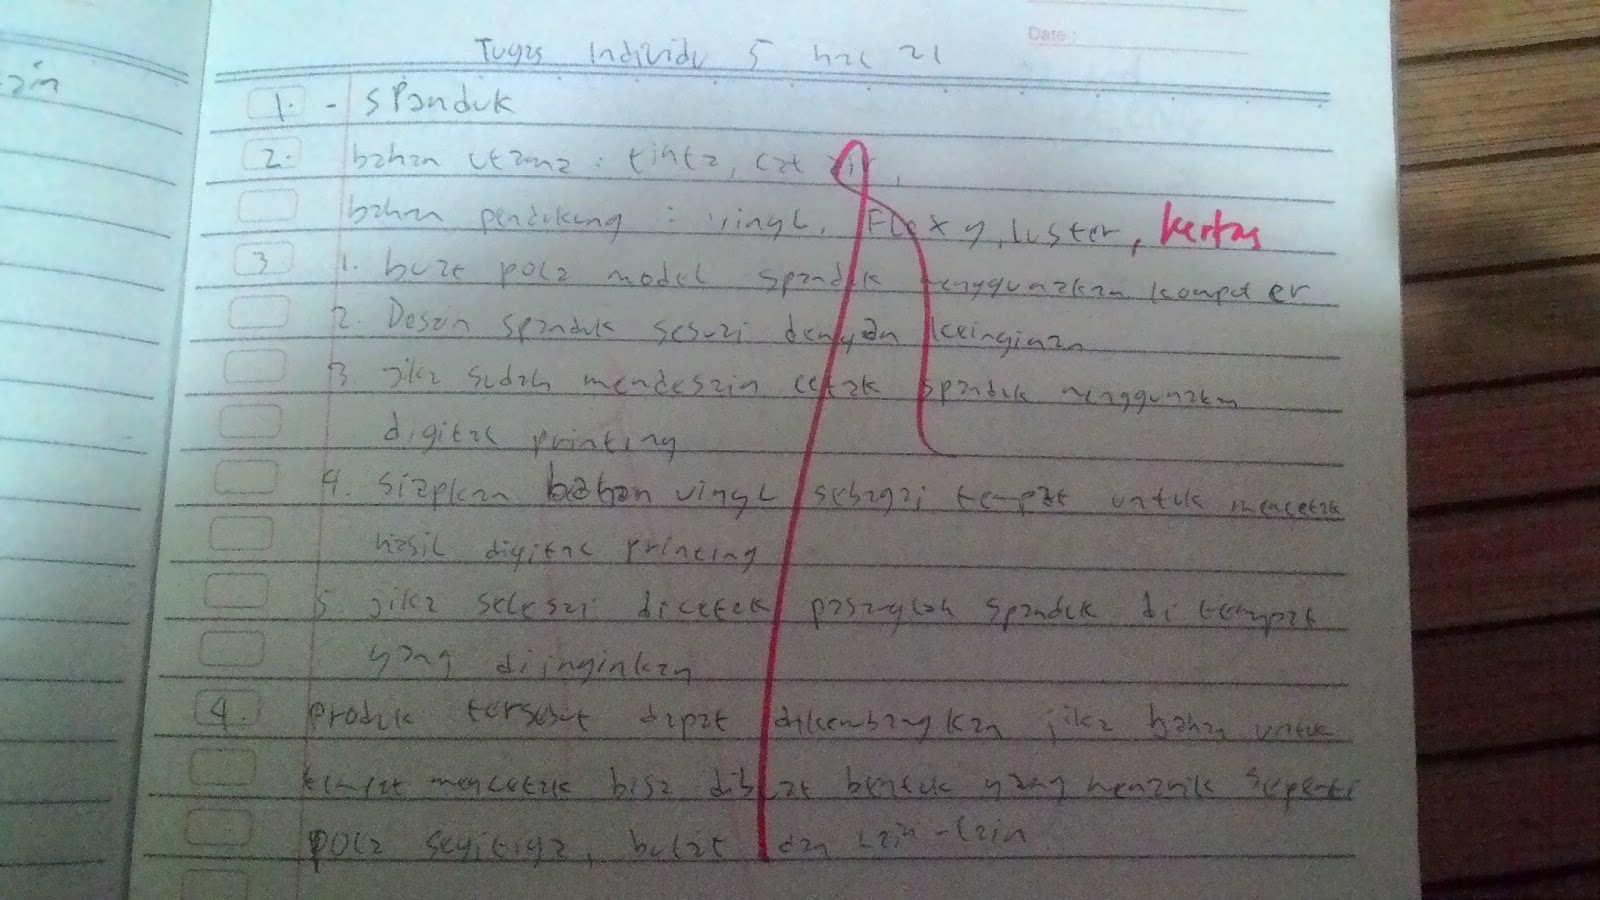 Date :
Tugas Individu 5 hal 21
1. - Spanduk
2. bahan utama : tinta, cat air,
bahan pendukung : vinyl, Flexy, luster, kertas
3 1. buat pola model spanduk menggunakan komputer
2. Desain spanduk sesuai dengan keinginan
3. jika sudah mendesain cetak spanduk menggunakan
digital printing
4. siapkan bahan vinyl sebagai tempat untuk mencetak
hasil digital printing
5 jika selesai dicetak pasanglah spanduk di tempat
yang diinginkan
4. produk tersebut dapat dikembangkan jika bahan untuk
tempat mencetak bisa dibuat bentuk yang menarik seperti
pola segitiga, bulat dan lain-lain